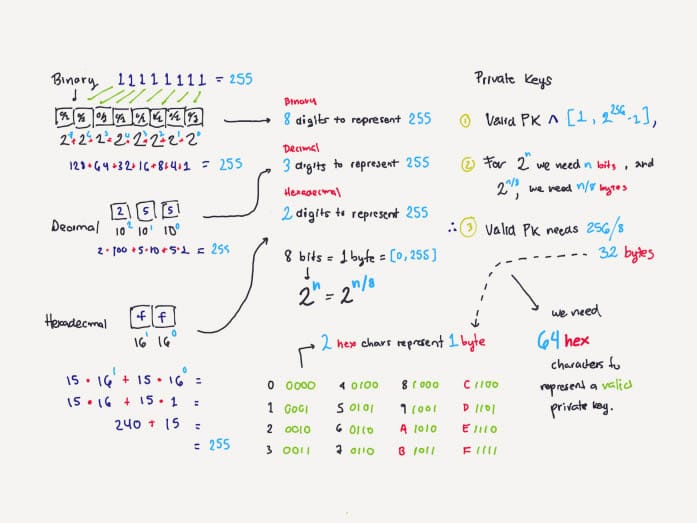 Binary 11111111 = 255
0/1 0/1 0/1 0/1 0/1 0/1 0/1 0/1
2⁷ + 2⁶ + 2⁵ + 2⁴ + 2³ + 2² + 2¹ + 2⁰
128 + 64 + 32 + 16 + 8 + 4 + 1 = 255
Decimal
2 5 5
10² 10¹ 10⁰
2 · 100 + 5 · 10 + 5 · 1 = 255
Hexadecimal
f f
16¹ 16⁰
15 · 16¹ + 15 · 16⁰ =
15 · 16 + 15 · 1 =
240 + 15 =
= 255
Binary
8 digits to represent 255
Decimal
3 digits to represent 255
Hexadecimal
2 digits to represent 255
8 bits = 1 byte = [0, 255]
2ⁿ = 2ⁿ/⁸
2 hex chars represent 1 byte
0 0000 4 0100 8 1000 C 1100
1 0001 5 0101 9 1001 D 1101
2 0010 6 0110 A 1010 E 1110
3 0011 7 0110 B 1011 F 1111
Private Keys
① Valid PK ∧ [1, 2²⁵⁶-1],
② For 2ⁿ we need n bits, and
2ⁿ/⁸, we need n/8 bytes
∴ ③ Valid PK needs 256/8
32 bytes
we need
64 hex
characters to
represent a valid
private key.